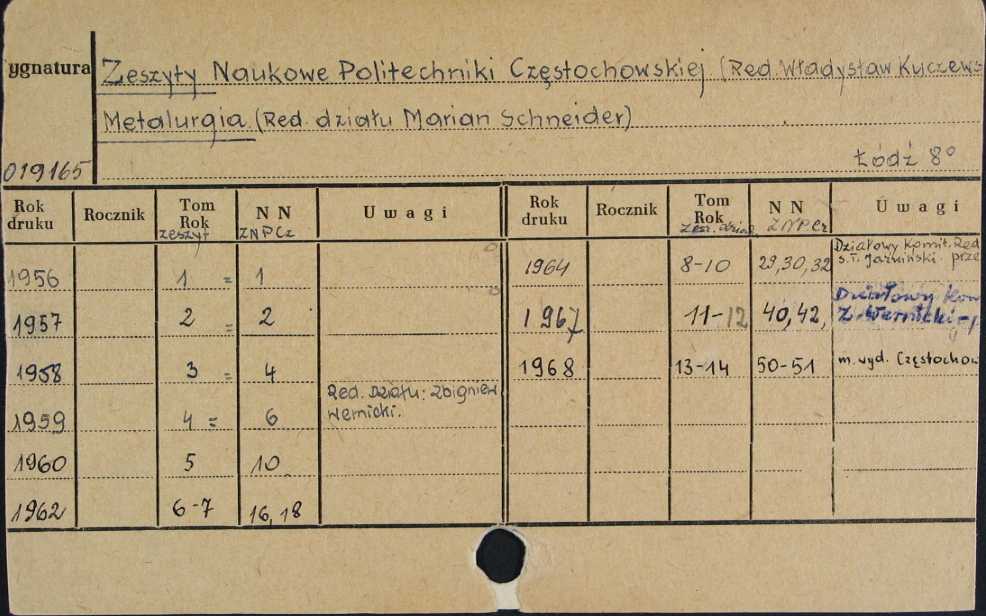 ygnatura Zeszyty Naukowe Politechniki Częstochowskiej (Red. Władysław Kuczews
Metalurgia (Red. działu Marian Schneider)
019165 Łódź 8°
Rok druku Rocznik Tom Rok zeszyt N N ZNPCz Uwagi
1956 1 = 1
1957 2 = 2
1958 3 = 4
Red. Działu: Zbigniew
Wernicki.
1959 4 = 6
1960 5 10
1962 6-7 16, 18
Rok druku Rocznik Tom Rok N N ZNPCz Uwagi
1964 8-10 29, 30, 32 Działowy Komit. Red
prze
1967 11-12 40, 42, Działowy Kom
Z. Wernicki-p
1968 13-14 50-51 m. wyd. Częstochow